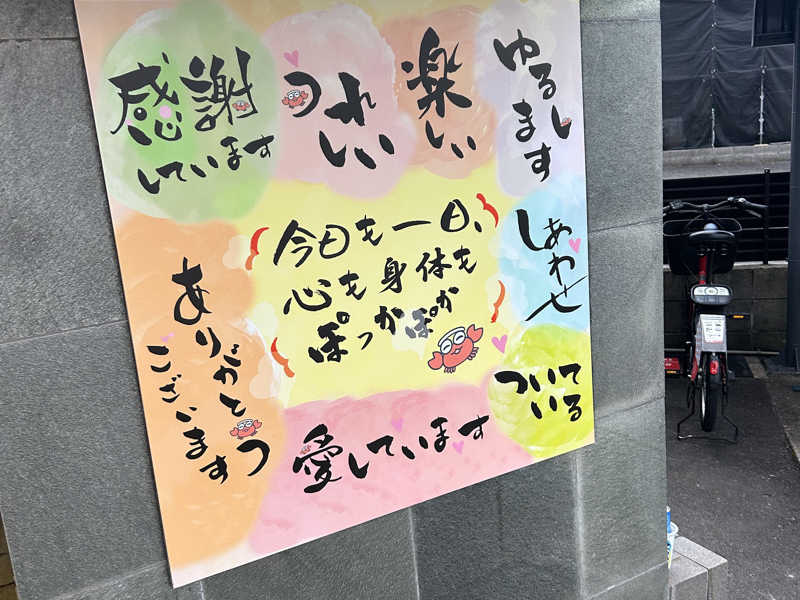 感謝
しています
うれ
しい
楽
しい
ゆるし
ます
今日も一日、
心も身体も
ぽっかぽか
しあわせ
ありがとう
ございます
ついて
いる
愛しています